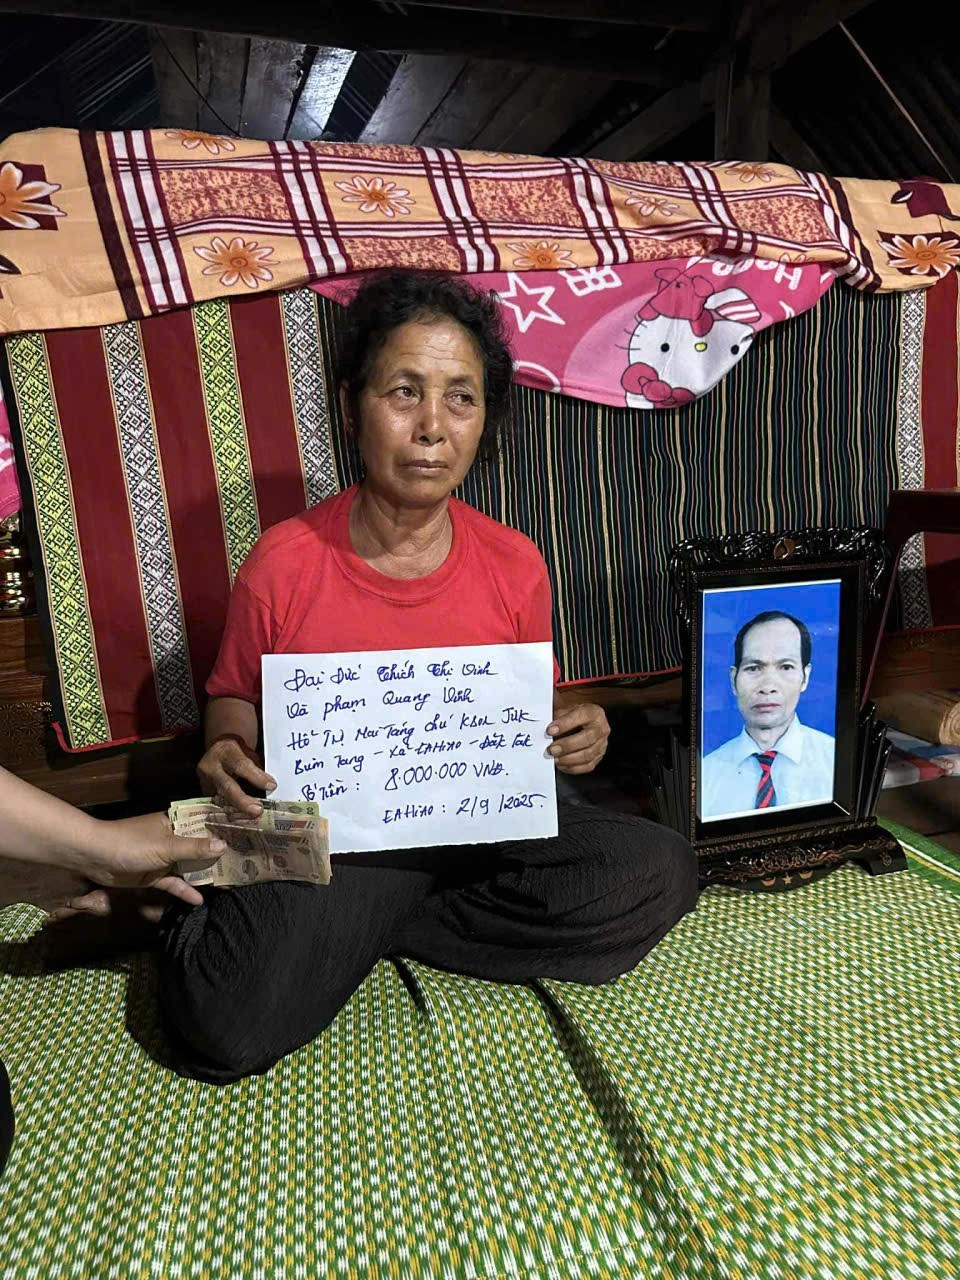 Đại Đức Thích Thị Vinh
Và phạm Quang Vinh
Hỗ Trợ Mai Táng chú KSOR JÚK
Buôn Tang - Xã EAHIAO - Đăk Lăk
Số Tiền : 8.000.000 VNĐ.
EAHIAO : 2/9/2025.